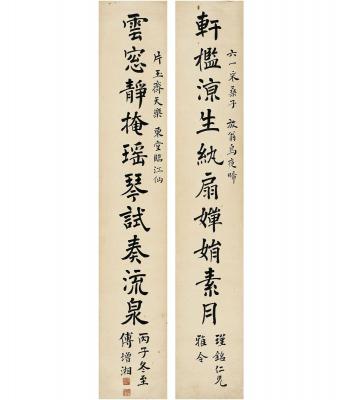 軒檻涼生紈扇嬋娟素月
六一采桑子 放翁烏夜啼
瑾銘仁兄
雅令
雲窓靜掩瑤琴試奏流泉
片玉齊天樂 東堂臨江仙
丙子冬至
傅增湘